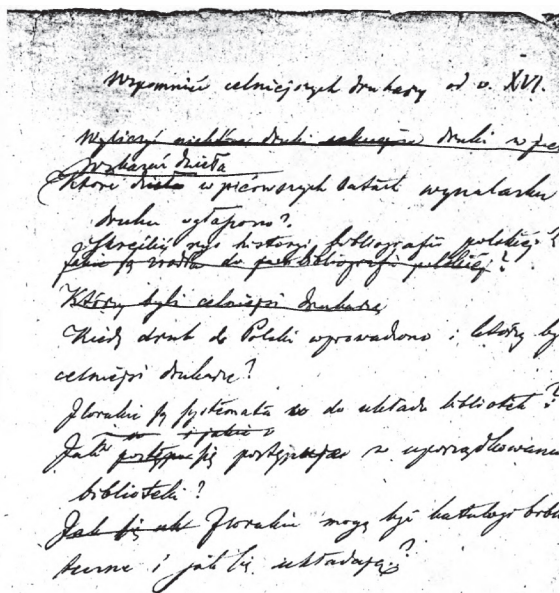 Wspomnieć celniejszych drukarzy od w. XVI.
Wyliczyć niektóre druki druki w
Wykazać dzieła
które dzieła w pierwszych latach wynalazku
druku wytłapiono?
Skreślić rys historyi bibliografii polskiej?
Jakie są źródła do bibliografii polskiej?
Którzy byli celniejsi drukarze
Kiedy druk do Polski wprowadzono i którzy by
celniejsi drukarze?
Jlorakie są systemata co do układu bibliotek?
i jakie
Jak postępuje się z uporządkowaniem
biblioteki?
Jak się Jlorakie mogą być katalogi
i jak się układają?